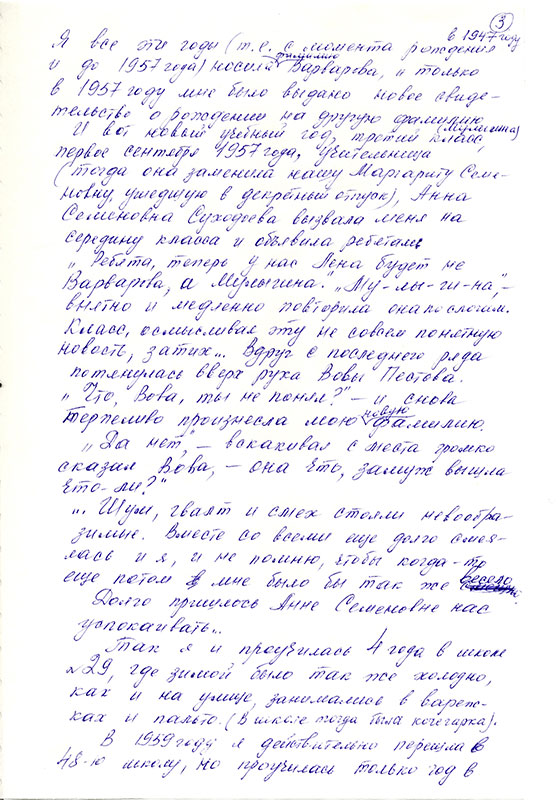 3
в 1947 году
Я все эти годы (т.е. с момента рождения
фамилию
и до 1957 года) носила Варварева, и только
в 1957 году мне было выдано новое свиде-
тельство о рождении на другую фамилию
(Мулыгина)
И вот новый учебный год, третий класс,
первое сентября 1957 года, учительница
(тогда она заменила нашу Маргариту Семе-
новну, ушедшую в декретный отпуск), Анна
Семеновна Суходоева вызвала меня на
середину класса и объявила ребятам:
„Ребята, теперь у нас Лена будет не
Варварева, а Мулыгина." „Му-лы-ги-на", –
внятно и медленно повторила она по слогам.
Класс, осмысливая эту не совсем понятную
новость, затих... Вдруг с последнего ряда
потянулась вверх рука Вовы Пестова.
„Что, Вова, ты не понял?" – и снова
новую
терпеливо произнесла мою фамилию.
„Да нет", – вскакивая с места громко
сказал Вова, – она что, замуж вышла
что-ли?"
... Шум, гвалт и смех стояли невообра-
зимые. Вместе со всеми еще долго смея-
лась и я, и не помню, чтобы когда-то
еще потом мне было бы так же весело
Долго пришлось Анне Семеновне нас
успокаивать...
Так я и проучилась 4 года в школе
№29, где зимой было так же холодно,
как и на улице, занимались в вареж-
ках и пальто. (В школе тогда была кочегарка).
В 1959 году я действительно перешла в
48-ю школу, но проучилась только год в